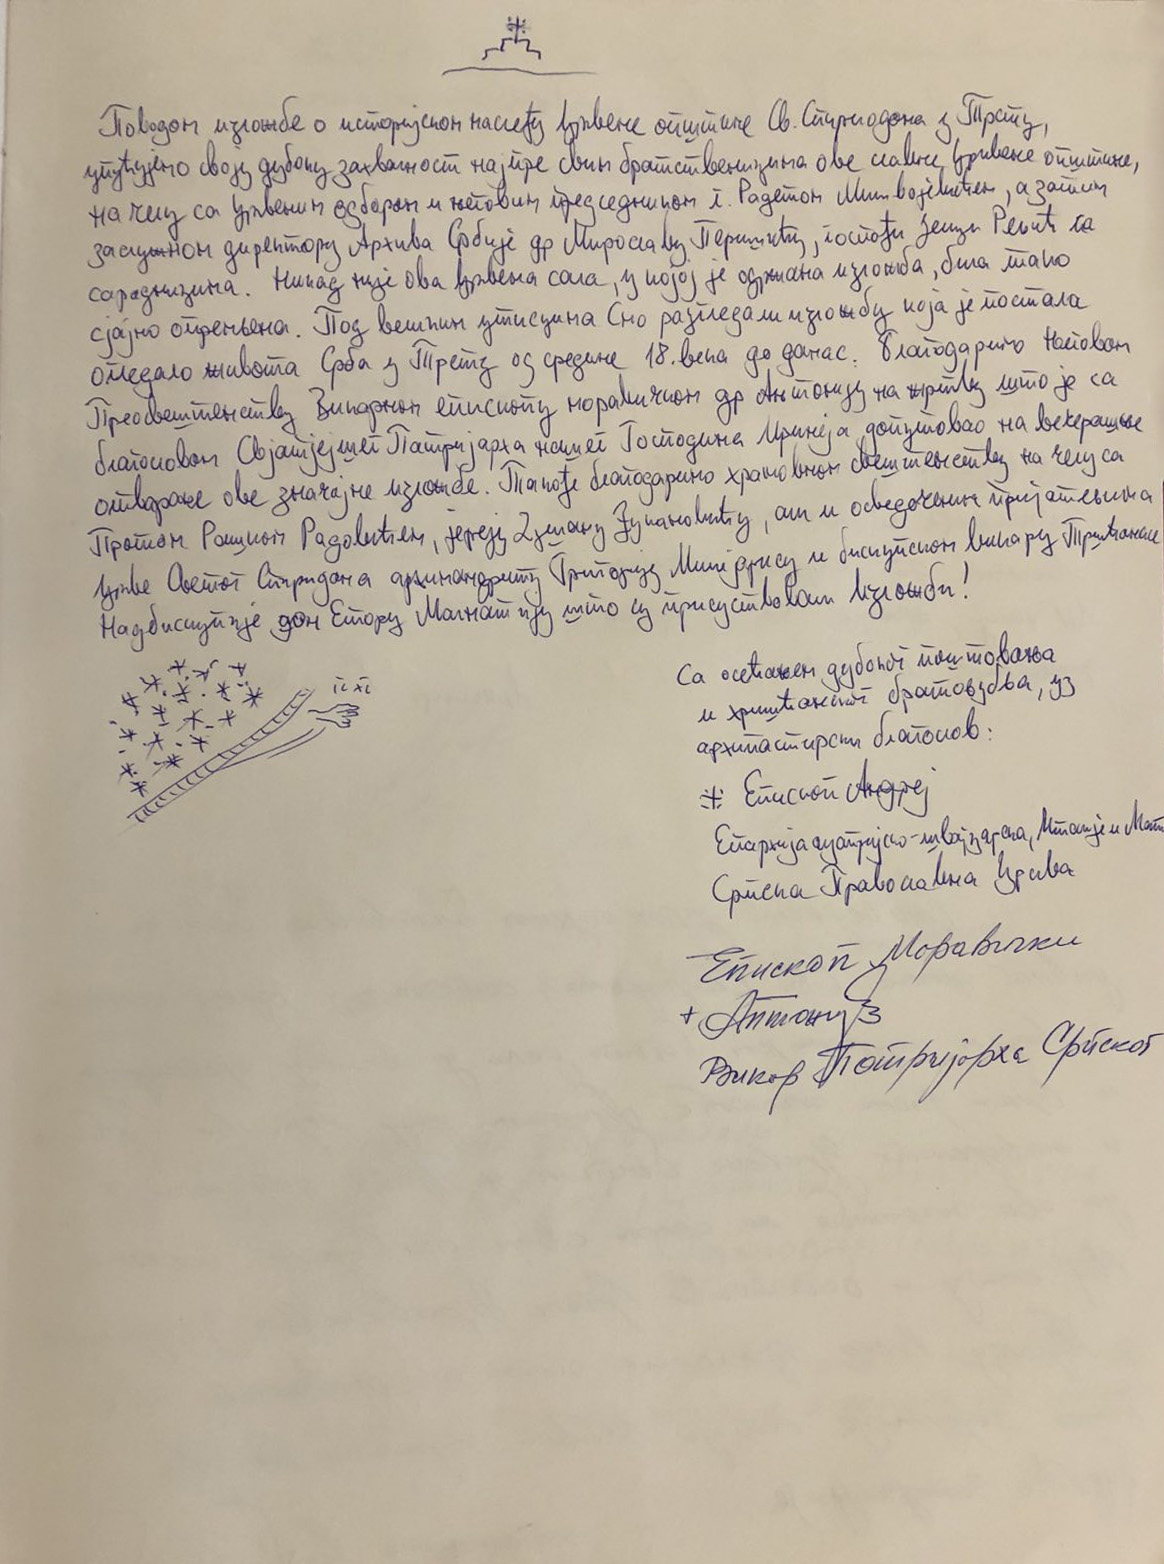 Поводом изложбе о историјском наслеђу Црквене општине Св. Спиридона у Трсту,
упућујемо своју дубоку захвалност најпре свим братственицима ове славне Црквене општине,
на челу са Црквеним одбором и његовим председником г. Радетом Миливојевићем, а затим
заслужном директору Архива Србије др Мирославу Перишићу, госпођи Јелици Рељић са
сарадницима. Никад није ова Црквена сала, у којој је одржана изложба, била тако
сјајно опремљена. Под великим утисцима смо разгледали изложбу која је постала
огледало живота Срба у Трсту од средине 18. века до данас. Благодаримо Његовом
Преосвештенству Викарном епископу моравичком др Антонију на жртви што је са
благословом Свјатјејшег Патријарха нашег Господина Иринеја допутовао на вечерашње
отварање ове значајне изложбе. Такође благодаримо храмовном свештенству на челу са
Протом Рашком Радовићем, јереју Душану Дукановићу, али и осведоченим пријатељима
Цркве Светог Спиридона архимандриту Григорију и бискупском викару Тршћанске
Надбискупије дон Етору Малнатију што су присуствовали Изложби!
Са осећањем дубоког поштовања
и хришћанског братољубља, уз
архипастирски благослов:
Епископ Андреј
Епархија аустријско-швајцарска, Италије и Малт
Српска Православна Црква
Епископ Моравички
+ Антоније
Викар Патријарха Српског